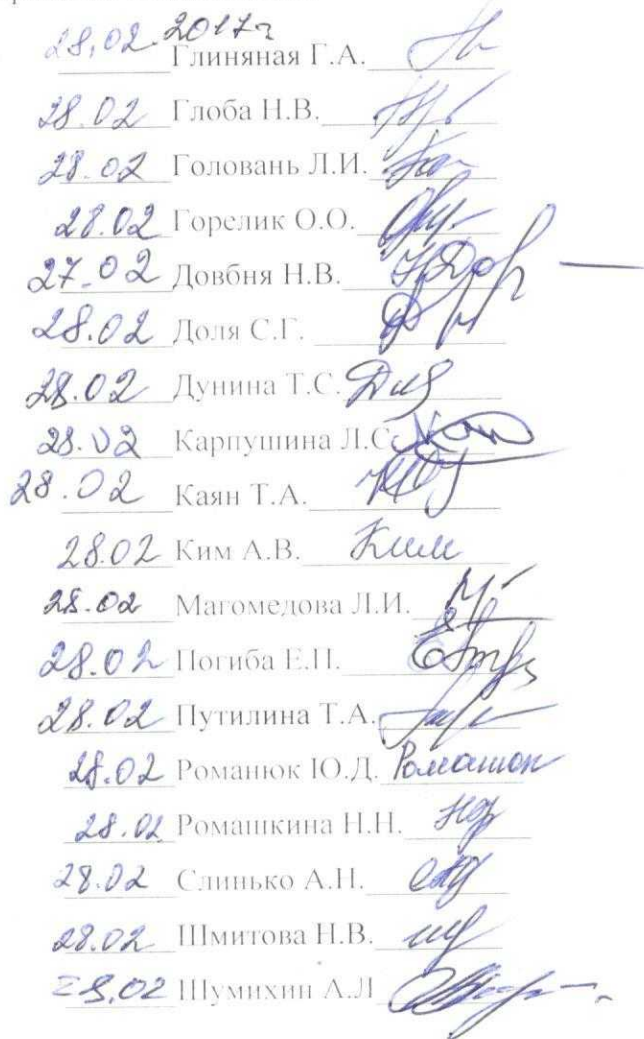 28.02.2017г Глиняная Г.А.
28.02 Глоба Н.В.
28.02 Головань Л.И.
28.02 Горелик О.О.
27.02 Довбня Н.В.
28.02 Доля С.Г.
28.02 Дунина Т.С.
28.02 Карпушина Л.С.
28.02 Каян Т.А.
28.02 Ким А.В. Ким
28.02 Магомедова Л.И.
28.02 Погиба Е.П.
28.02 Путилина Т.А.
28.02 Романюк Ю.Д.
28.02 Ромашкина Н.Н.
28.02 Слинько А.Н.
28.02 Шмитова Н.В.
28.02 Шумихин А.Л